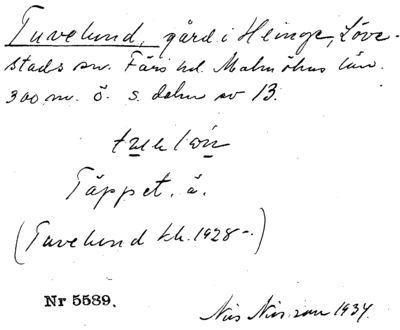 Tuvelund, gård i Heinge, Löve-
stads sn. Färs hd. Malmöhus län.
300 m. ö. s. delen av 13.
Täppet, å.
(Tuvelund kh. 1928-.)
Nr 5589.
Nils Nilsson 1934.